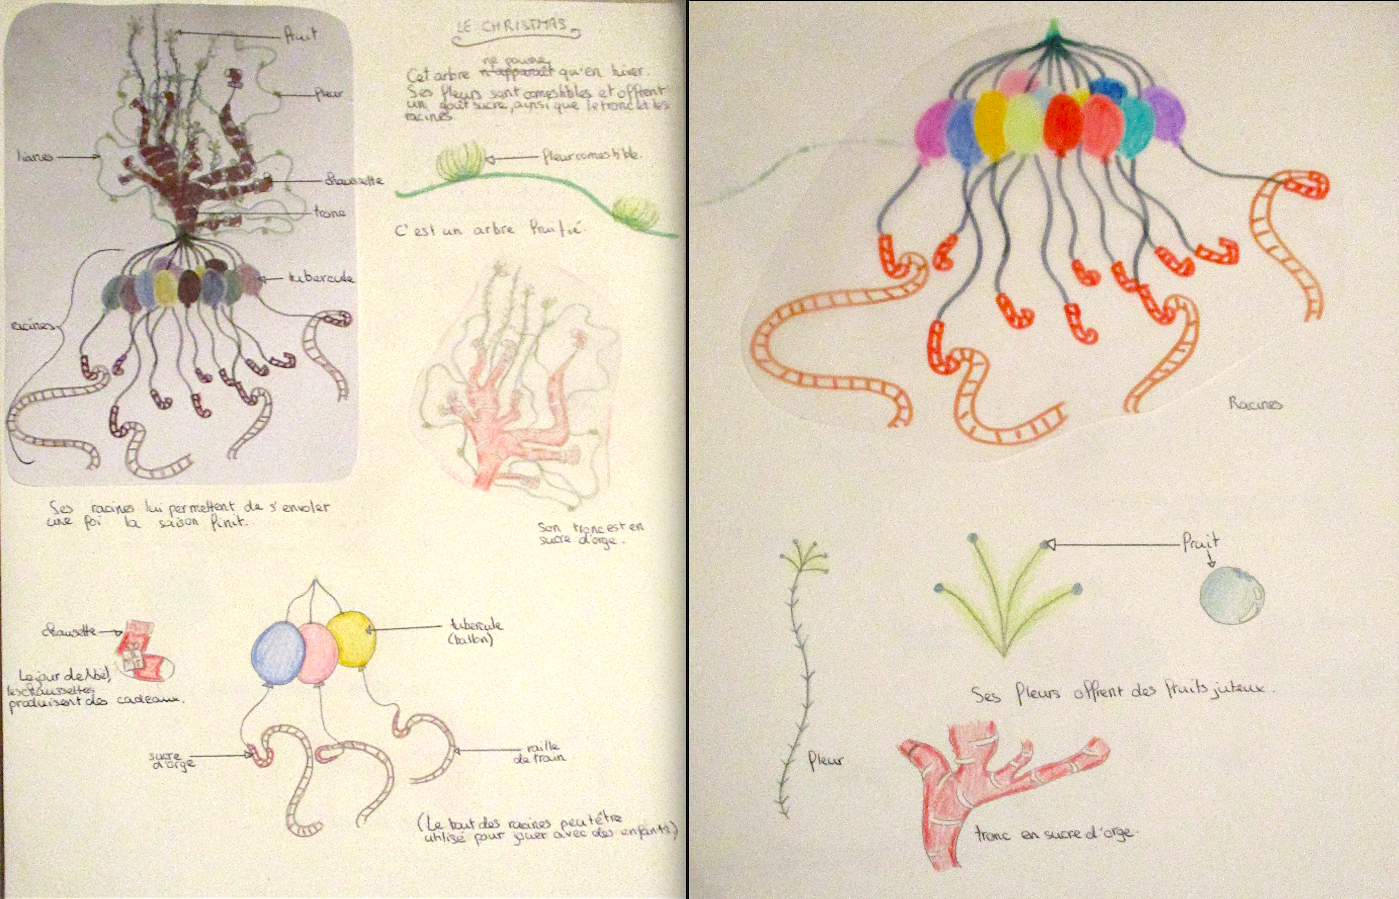 LE CHRISTMAS
fruit
fleur
lianes
chaussette
tronc
tubercule
racines
ne pousse
Cet arbre n'apparaît qu'en hiver.
Ses fleurs sont comestibles et offrent
un goût sucré, ainsi que le tronc et les
racines.
fleur comestible.
C'est un arbre fruitié.
Ses racines lui permettent de s'envoler
une foi la saison finit.
Son tronc est en
sucre d'orge.
chausette
Le jour de Noël,
les chaussettes
produisent des cadeaux.
tubercule
(ballon)
sucre
d'orge
raille
de train
(Le bout des racines peut être
utilisé pour jouer avec des enfants)
Racines
fruit
Ses fleurs offrent des fruits juteux.
fleur
tronc en sucre d'orge.